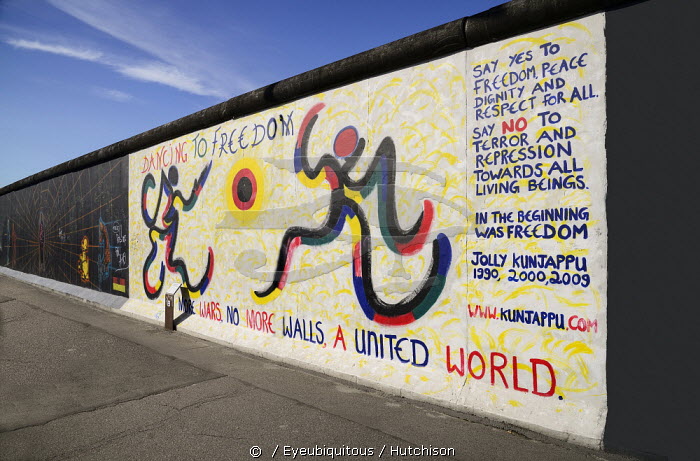 DANCING TO FREEDOM
SAY YES TO
FREEDOM, PEACE
DIGNITY AND
RESPECT FOR ALL.
SAY NO TO
TERROR AND
REPRESSION
TOWARDS ALL
LIVING BEINGS.
IN THE BEGINNING
WAS FREEDOM
JOLLY KUNJAPPU
1990, 2000, 2009
WWW.KUNJAPPU.COM
MORE WARS, NO MORE WALLS, A UNITED WORLD.
© / Eyeubiquitous / Hutchison